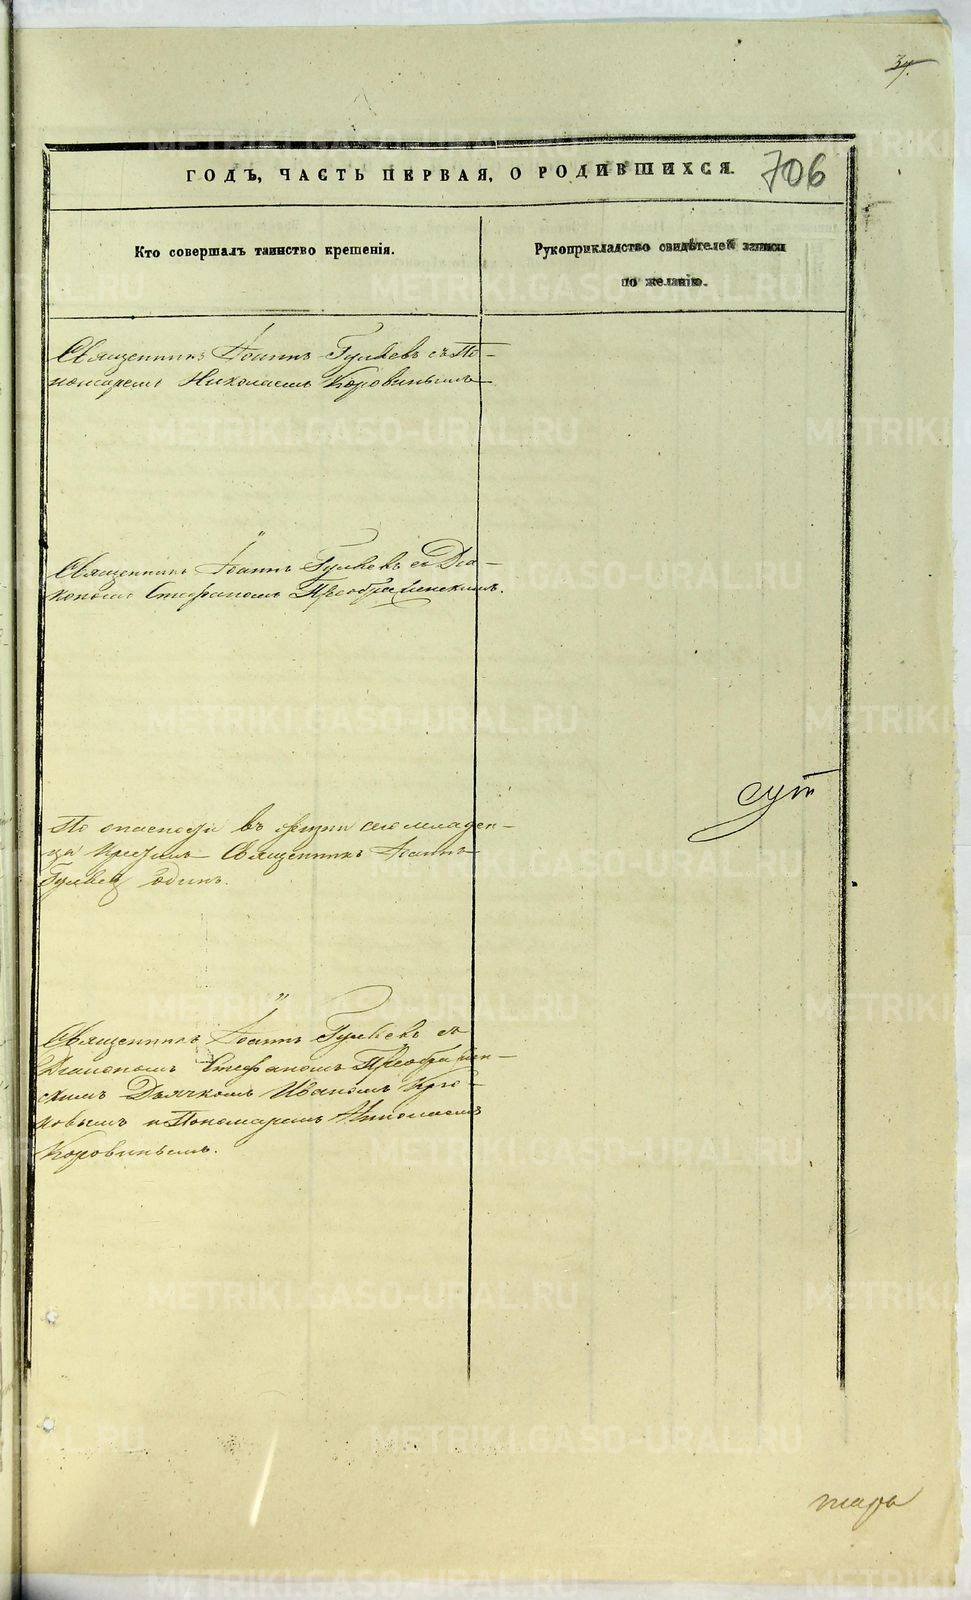 37.
ГОДЪ, ЧАСТЬ ПЕРВАЯ, О РОДИВШИХСЯ.
706
Кто совершалъ таинство крещенія.
Рукоприкладство свидѣтелей записи
по желанію.
Священникъ Іоаннъ Гуляевъ съ По-
номаремъ Николаемъ Коровинымъ
Священникъ Іоаннъ Гуляевъ съ Діа-
кономъ Стефаномъ Преображенскимъ.
По опасности въ жизни сего младен-
ца крестилъ Священникъ Іоаннъ
Гуляевъ одинъ.
Священникъ Іоаннъ Гуляевъ съ
Діакономъ Стефаномъ Преображен-
скимъ Дьячкомъ Иваномъ
и Пономаремъ Николаемъ
Коровинымъ.
METRIKI.GASO-URAL.RU